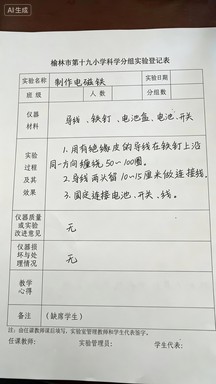 AI生成
榆林市第十九小学科学分组实验登记表
实验名称 制作电磁铁 实验日期
班级 人数 分组数
仪器材料 导线、铁钉、电池盒、电池、开关
实验过程及其效果
1.用有绝缘皮的导线在铁钉上沿
同一方向缠绕50~100圈。
2.导线两头留10~15厘米做连接线。
3.固定连接电池、开关、线。
仪器质量或实验改进意见 无
仪器损坏与处理情况 无
教学心得
备注 (缺席学生)
注:由任课教师课后填写,实验室管理教师和学生代表签字。
任课教师: 实验管理员: 学生代表: